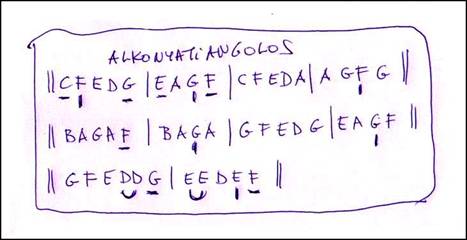 ALKONYATI ANGOLOS
|| C F E D G | E A G F | C F E D A | A G F G ||
|| B A G A F | B A G A | G F E D G | E A G F ||
|| G F E D D G | E E D E F ||